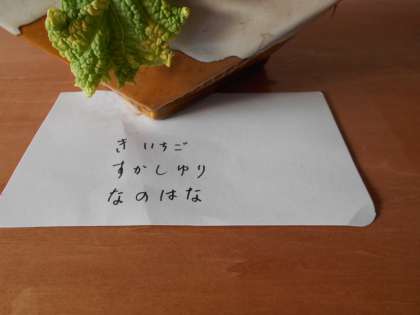 きいちご
すかしゆり
なのはな